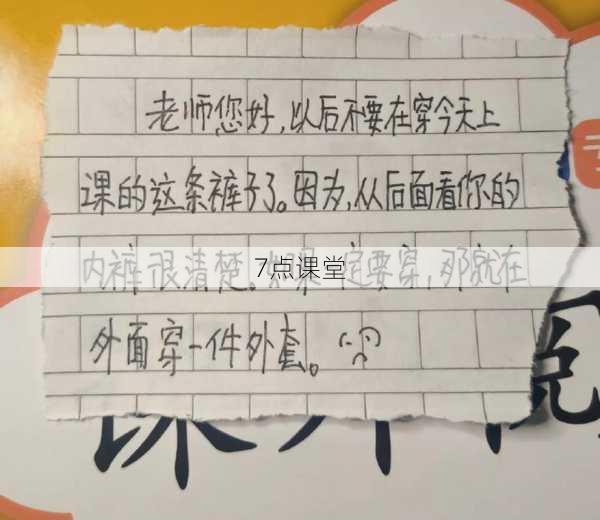 老师您好,以后不要在穿今天上
课的这条裤子了。因为,从后面看你的
内裤很清楚。如果一定要穿,那就在
7点课堂
外面穿一件外套。
课外阅